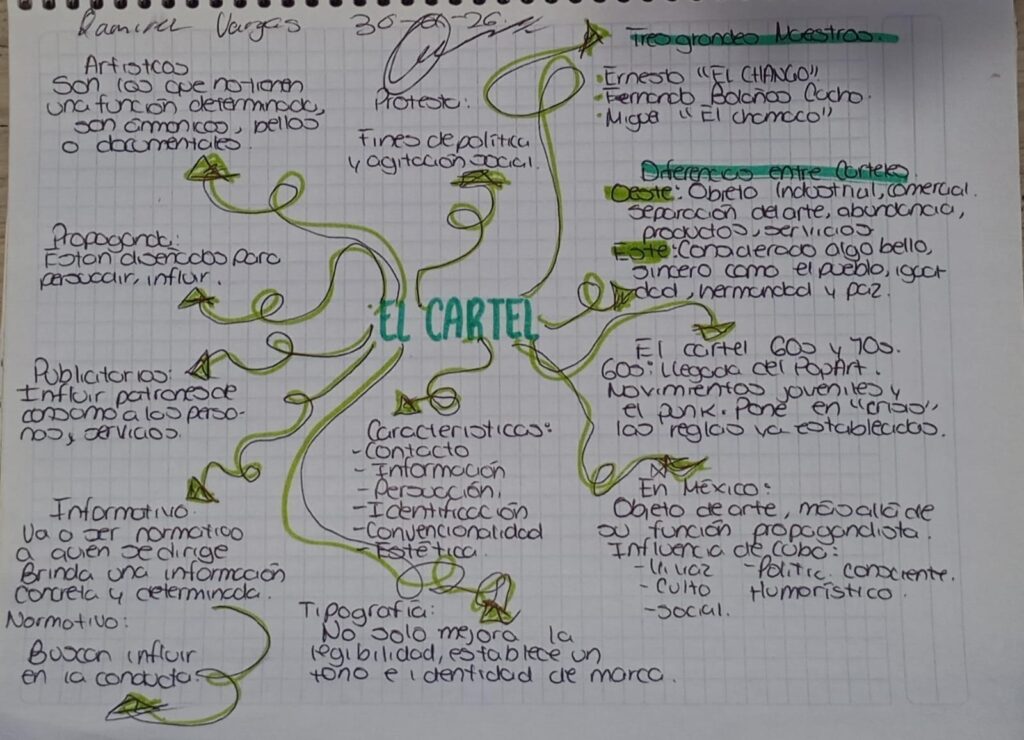 Ramirez Vargas
Artisticos
Son los que no tienen
una función determinada,
son armonicos, bellos
o documentales.
Protesta:
Fines de política
y agitación social.
Tres grandes Maestros.
• Ernesto "EL CHANGO"
• Fernando Bolaños Cacho.
• Migue "El chamaco"
Diferencias entre Carteles
Oeste: Objeto Industrial, comercial.
separación del arte, abundancia,
productos, servicios
Este: Considerado algo bello,
sincero como el pueblo, igual
dad, hermandad y paz.
Propaganda:
Estan diseñados para
persuadir, influir.
EL CARTEL
Publicitarios:
Influir patrones de
consumo a las perso-
nas, servicios.
El cartel 60s y 70s.
60s: LLegada del PopArt.
Movimientos joveniles y
el punk. Pone en "crisis"
las reglas ya establecidas.
Caracteristicas:
- Contacto
- Información
- Persucción.
- Identificación
- Convencionalidad
- Estética.
Informativo.
Va o ser normatico
a quien se dirige
Brinda una información
Concreta y determinada.
En México:
Objeto de arte, más allá de
su función propagandista.
Influencia de Cuba:
- Vivaz - Politic. consciente.
- Culto Humorístico.
- Social.
Normativo:
Buscan influir
en la conducta.
Tipografía:
No solo mejora la
legibilidad, establece un
tono e identidad de marca.